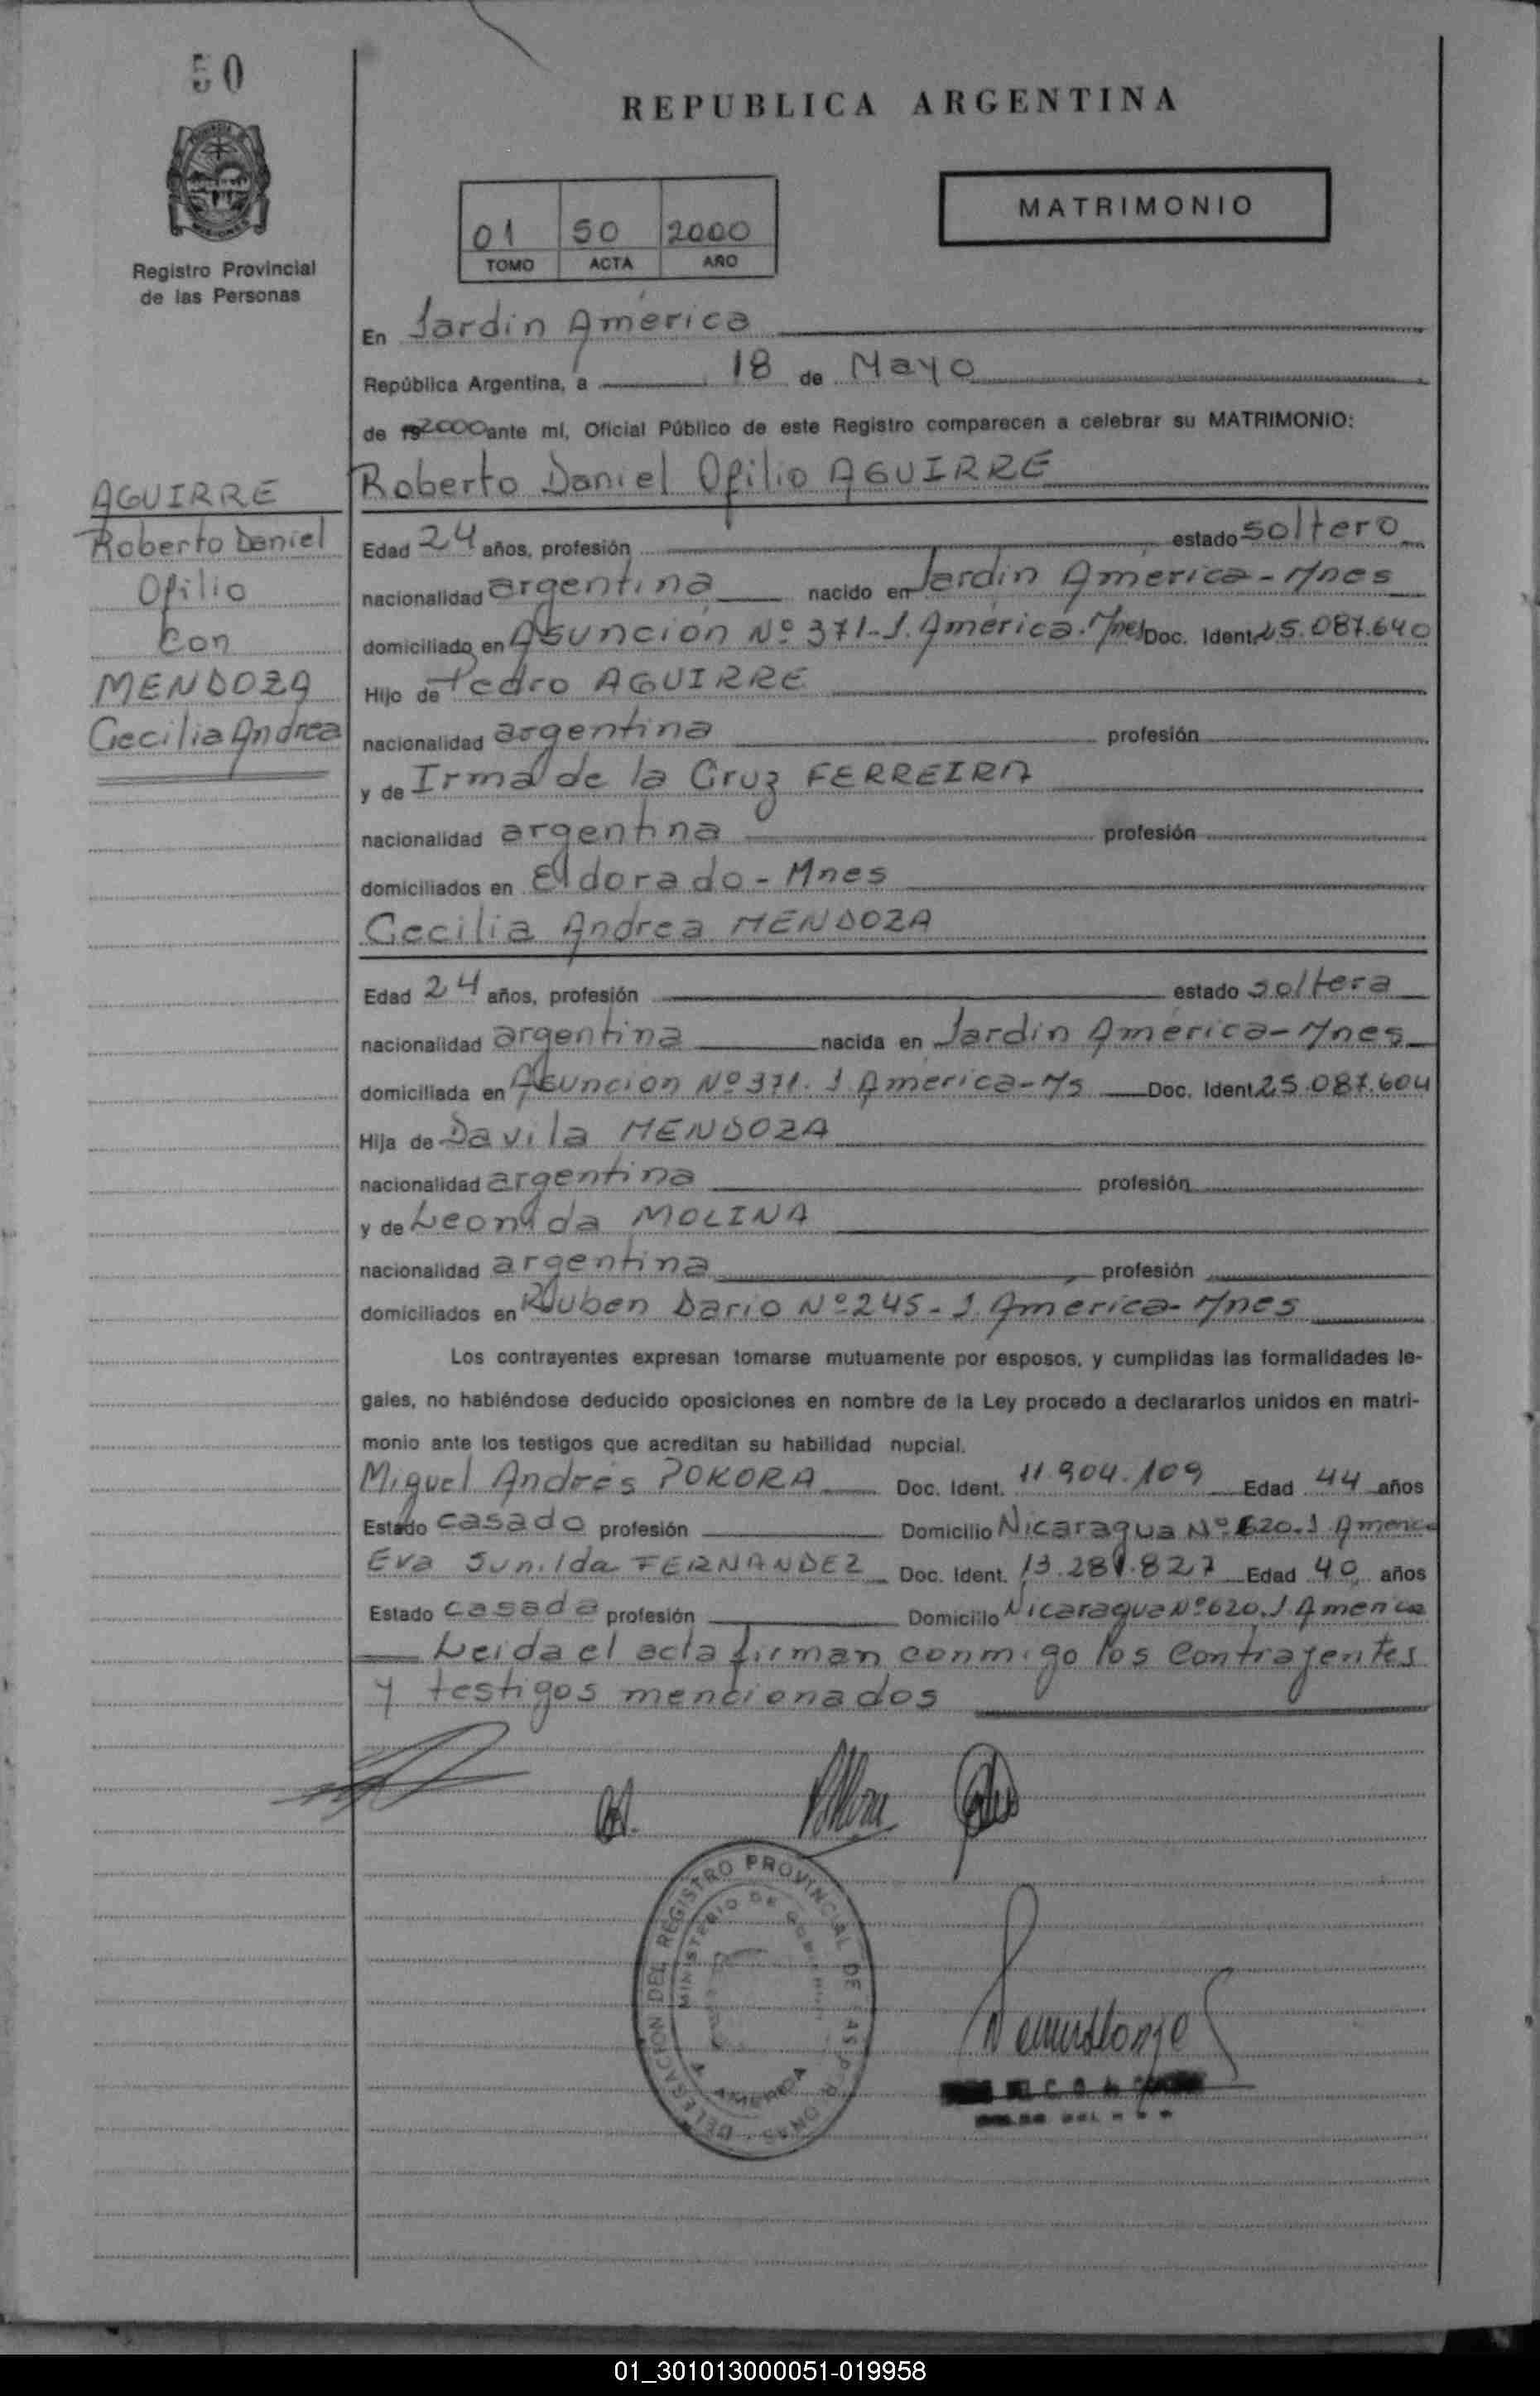 50
REPUBLICA ARGENTINA
MATRIMONIO
01 50 2000
TOMO ACTA AÑO
Registro Provincial
de las Personas
En Jardin América
República Argentina, a 18 de Mayo
de 2000 ante mí, Oficial Público de este Registro comparecen a celebrar su MATRIMONIO:
AGUIRRE
Roberto Daniel
Ofilio
Con
MENDOZA
Cecilia Andrea
Roberto Daniel Ofilio AGUIRRE
Edad 24 años, profesión estado soltero
nacionalidad argentina nacido en Jardin América - Mnes
domiciliado en Asunción Nº 371 - J. América. Mnes Doc. Ident. 25.087.640
Hijo de Pedro AGUIRRE
nacionalidad argentina profesión
y de Irma de la Cruz FERREIRA
nacionalidad argentina profesión
domiciliados en Eldorado - Mnes
Cecilia Andrea MENDOZA
Edad 24 años, profesión estado soltera
nacionalidad argentina nacida en Jardin América - Mnes
domiciliada en Asunción Nº 371. J América - Ms Doc. Ident. 25.087.604
Hija de Davila MENDOZA
nacionalidad argentina profesión
y de Leonida MOLINA
nacionalidad argentina profesión
domiciliados en Ruben Dario Nº 245 - J. América - Mnes
Los contrayentes expresan tomarse mutuamente por esposos, y cumplidas las formalidades le-
gales, no habiéndose deducido oposiciones en nombre de la Ley procedo a declararlos unidos en matri-
monio ante los testigos que acreditan su habilidad nupcial.
Miguel Andrés POKORA Doc. Ident. 11.904.109 Edad 44 años
Estado casado profesión Domicilio Nicaragua Nº 620. J América
Eva Sunilda FERNANDEZ Doc. Ident. 13.281.827 Edad 40 años
Estado casada profesión Domicilio Nicaragua Nº 620. J America
Leida el acta firman conmigo los Contrayentes
y testigos mencionados
DELEGACION DEL REGISTRO PROVINCIAL DE LAS PERSONAS
MINISTERIO DE GOBIERNO
AMERICA
01_301013000051-019958